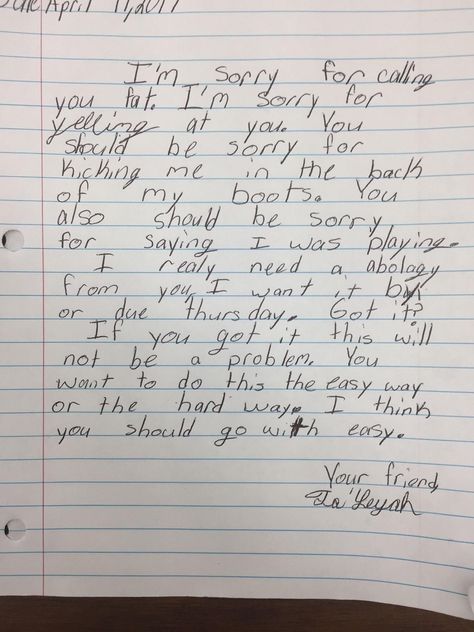 Date April 11, 2017
I'm sorry for calling
you fat. I'm sorry for
yelling at you. You
should be sorry for
kicking me in the back
of my boots. You
also should be sorry
for saying I was playing.
I realy need a abolagy
from you, I want it by
or due thursday. Got it?
If you got it this will
not be a problem. You
want to do this the easy way
or the hard way. I think
you should go with easy.
Your friend,
Ta'Leyah